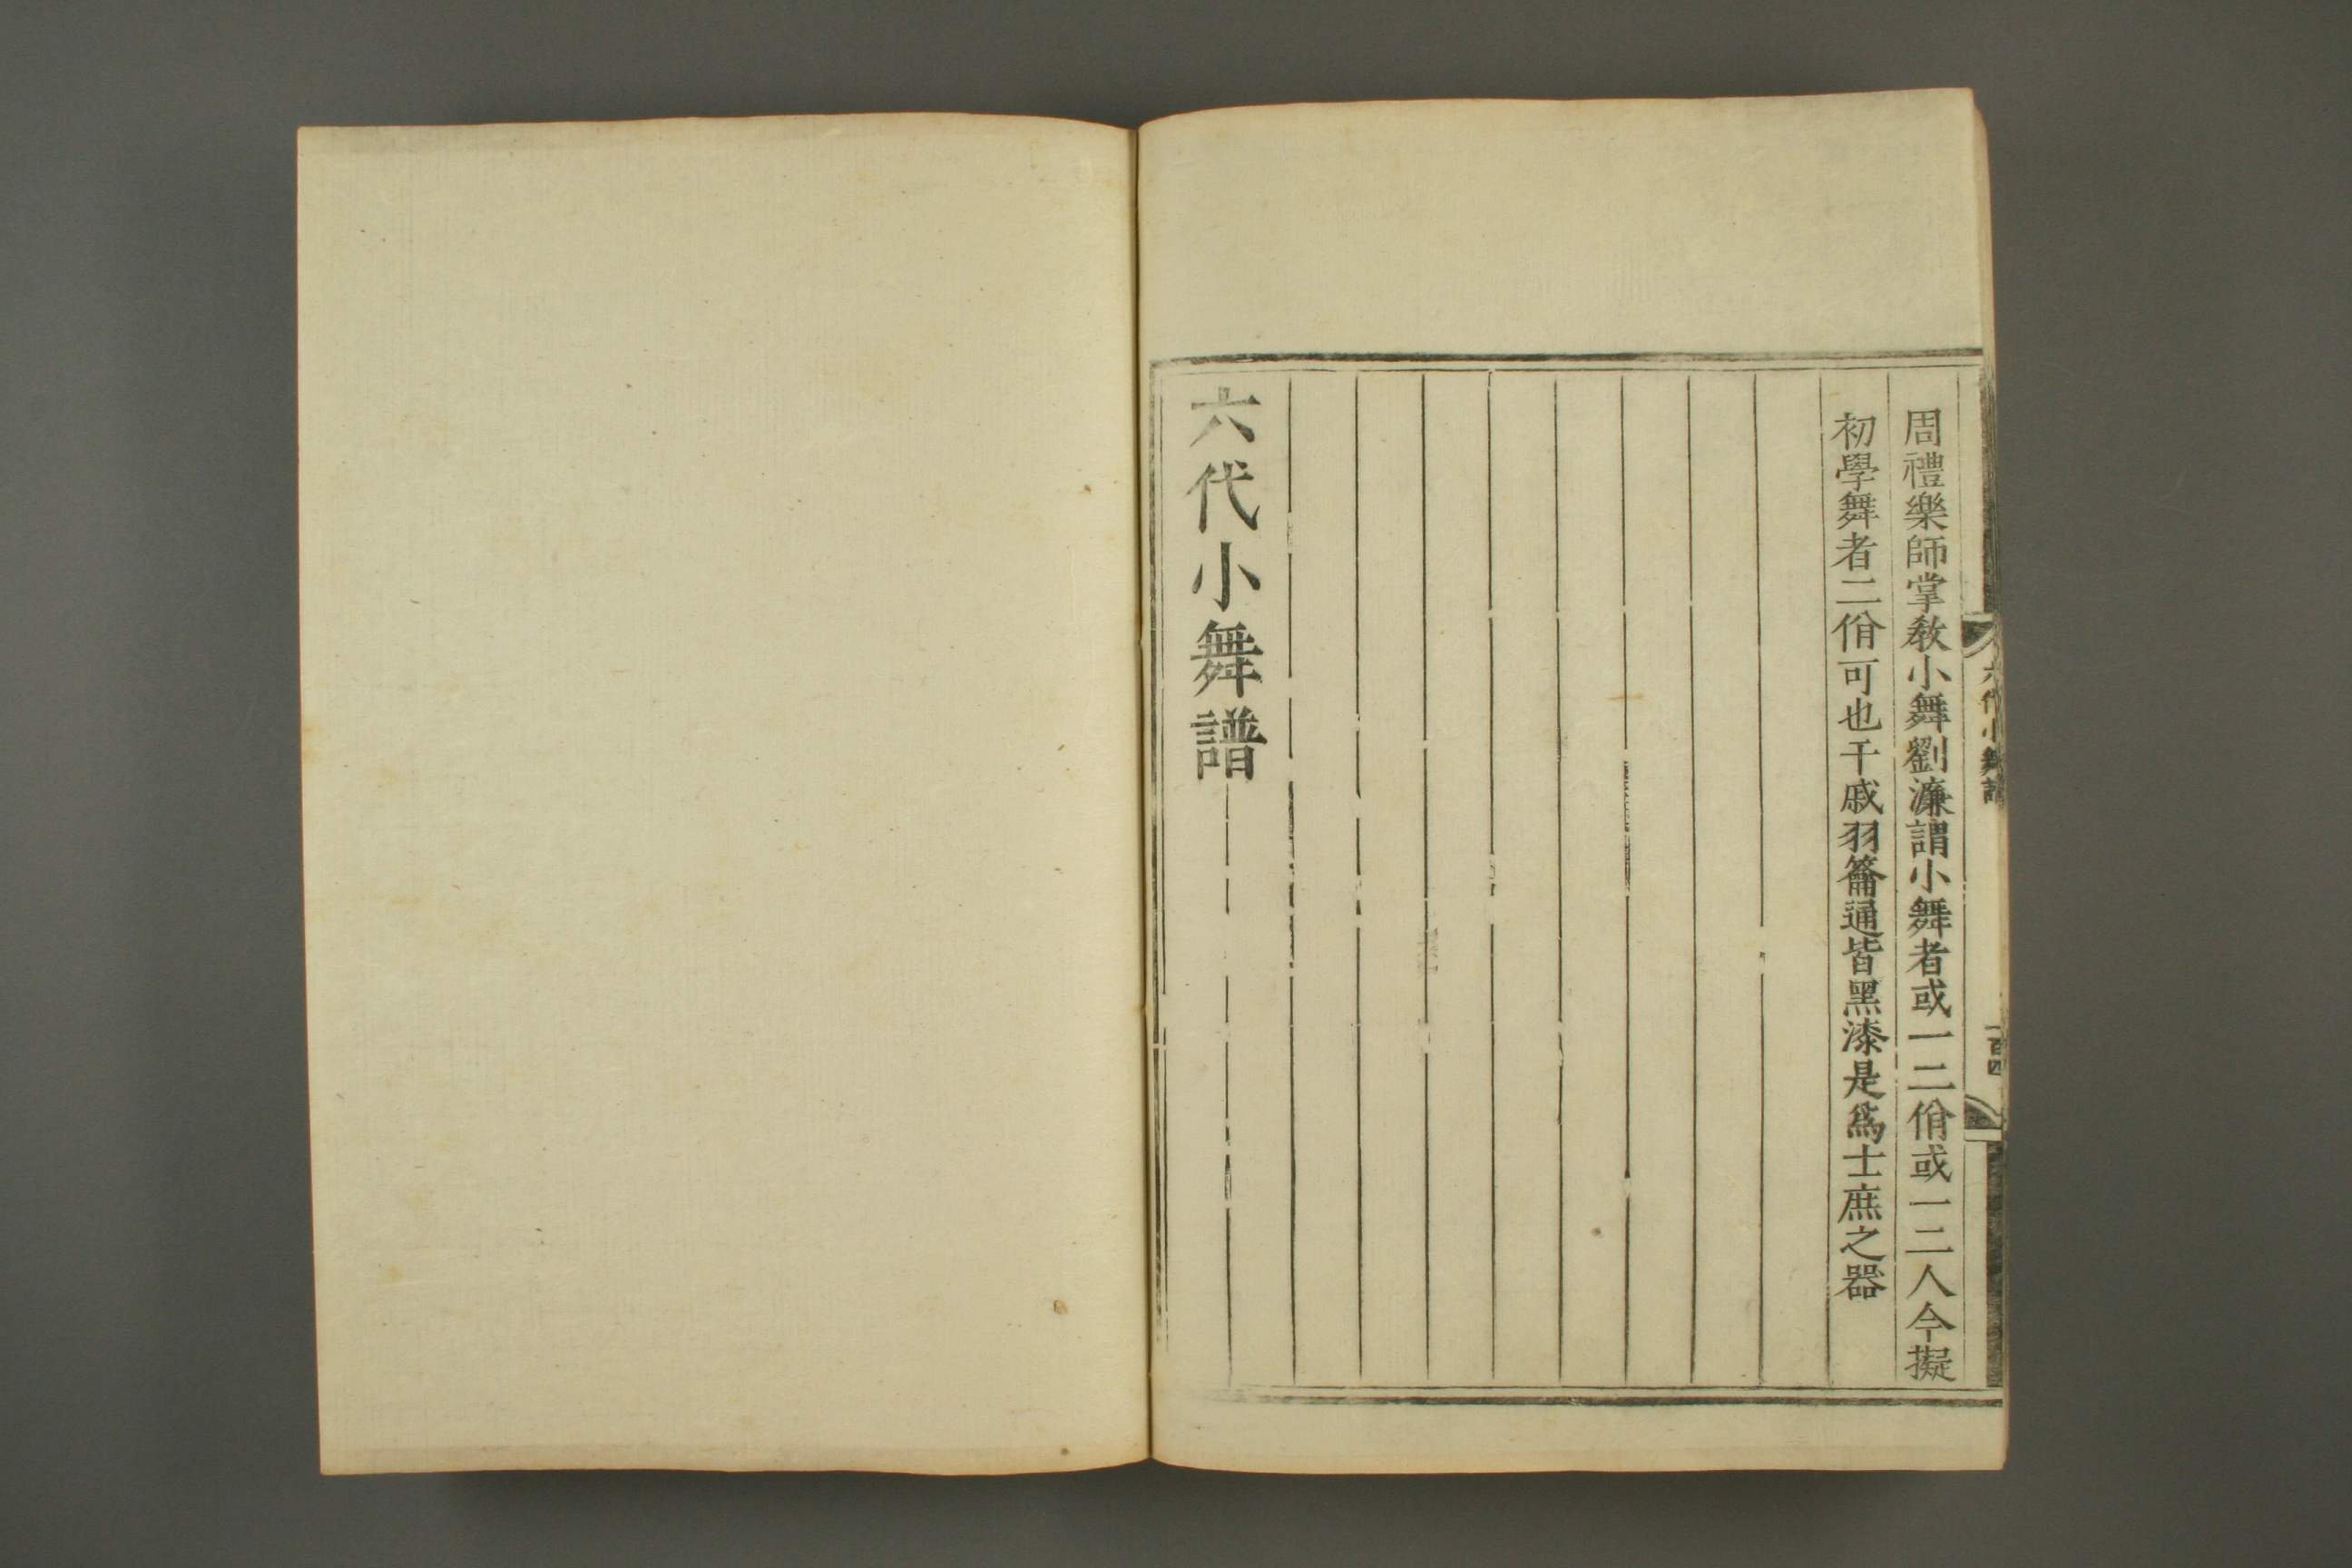 周禮樂師掌教小舞劉濂謂小舞者或一二佾或一二人今擬
初學舞者二佾可也干戚羽籥通皆黑漆是爲士庶之器
六代小舞譜
六代小舞譜
一百四